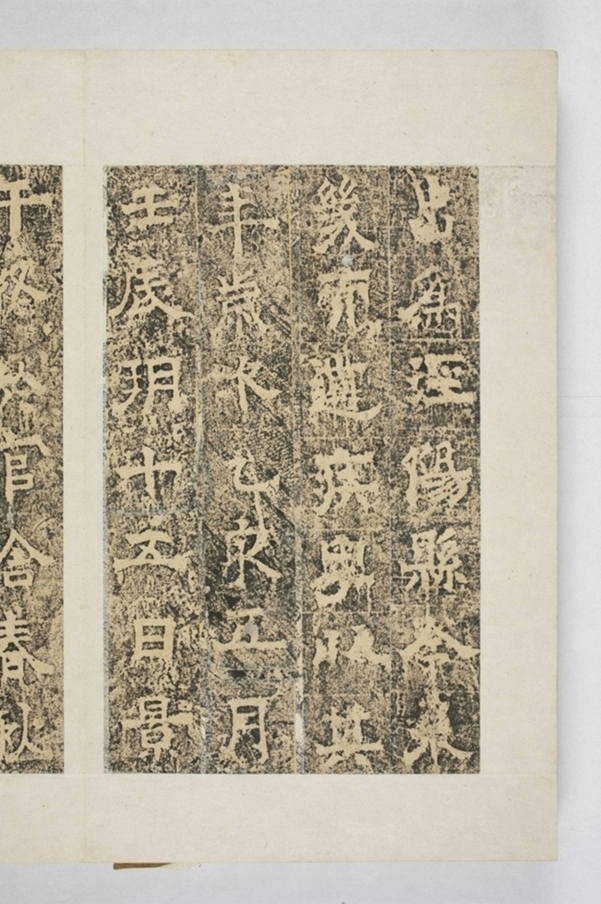 出為涇陽縣令未
幾而遘疾粵以其
年歲次乙未五月
壬辰朔十五日景
午終於官舍春秋